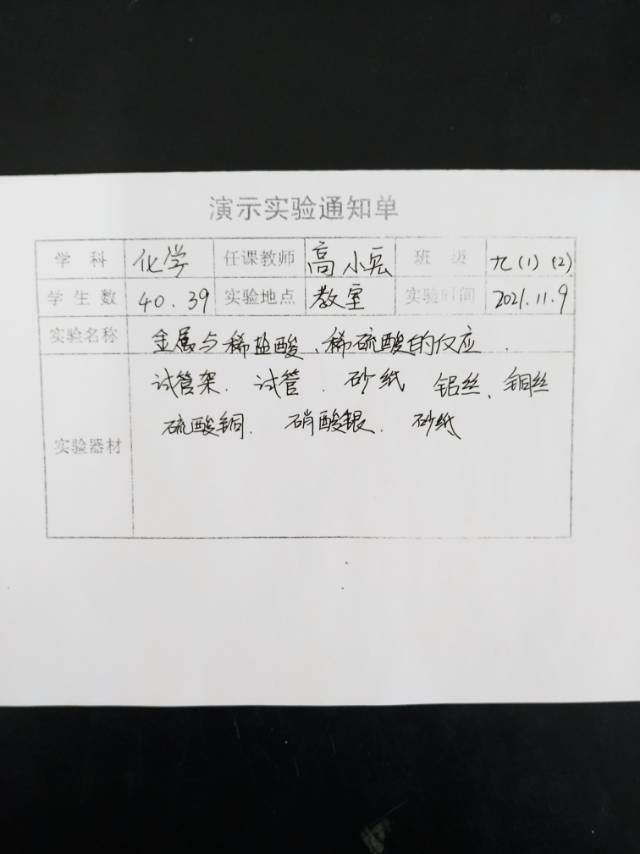 演示实验通知单
学科 化学 任课教师 高小兵 班级 九(1)(2)
学生数 40.39 实验地点 教室 实验时间 2021.11.9
实验名称 金属与稀盐酸、稀硫酸的反应.
实验器材 试管架. 试管. 砂纸 铝丝、铜丝
硫酸铜. 硝酸银. 砂纸